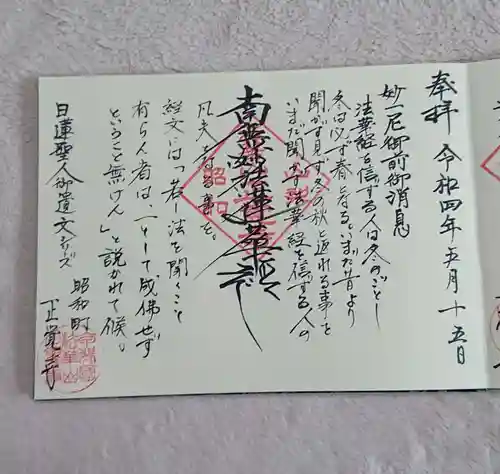 奉拝 令和四年五月十五日
妙一尼御前御消息
法華経を信ずる人は冬のごとし
冬は必ず春となるいまだ昔より
聞かず見ず冬の秋と返れる事を
いまだ聞かず法華経を信ずる人の
南無妙法蓮華経
凡夫となる事を。
経文には「若し法を聞くこと
有らん者は、一として成佛せず
ということ無けん」と説かれて候。
日蓮聖人御遺文
昭和町
正覚寺
昭和